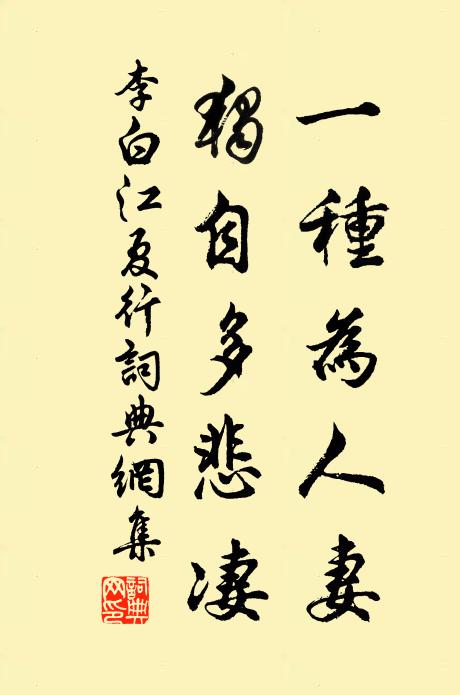 一種為人妻
獨自多悲凄
李白江夏行詞典網集
詞典
网印